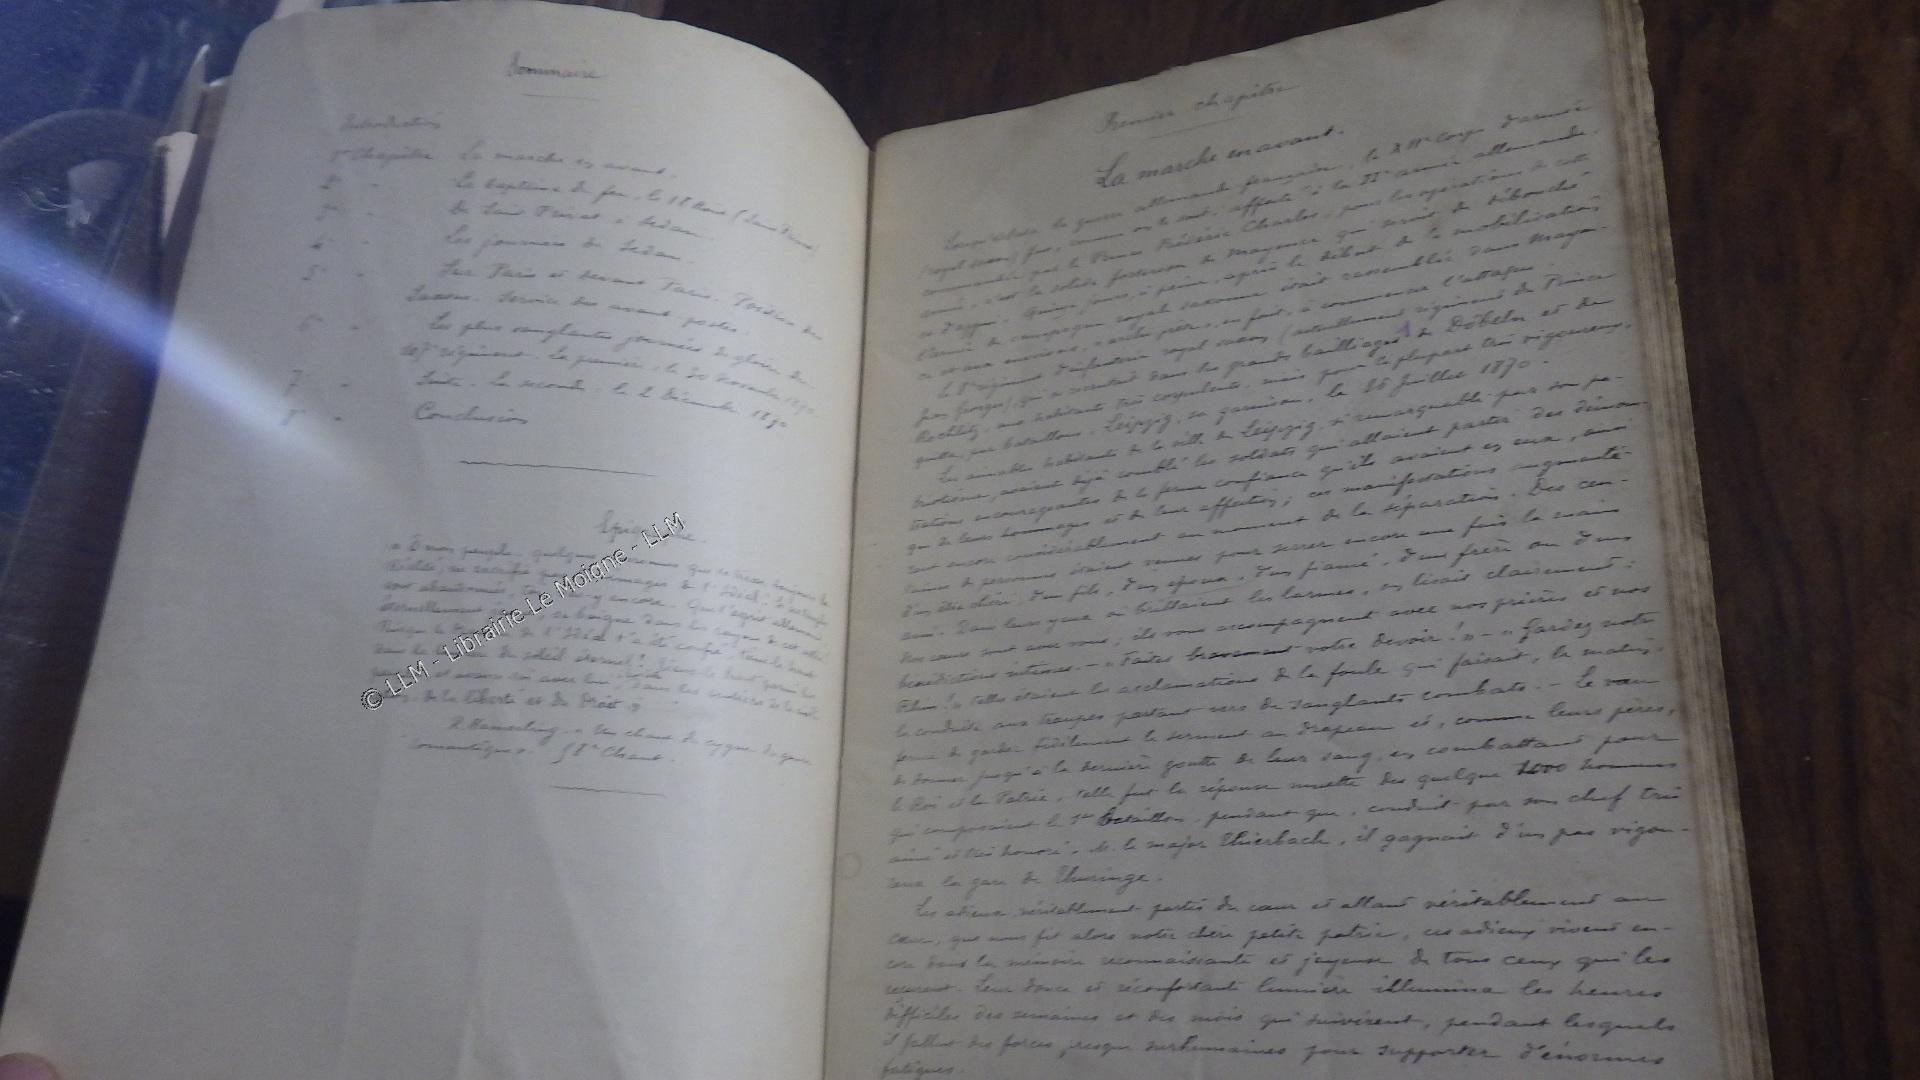 Sommaire
Introduction
1er Chapitre La marche en avant.
2e - Le baptême du feu, le 18 Août (Saint Privat)
3e - De Saint Privat à Sedan.
4e - Les journées de Sedan.
5e - Sur Paris et devant Paris. Position des
Saxons. Service des avant-postes.
6e - Les plus sanglantes journées de gloire du
107e régiment. La première, le 30 Novembre 1870
7e - Suite. La seconde, le 2 Décembre 1870
8e - Conclusion
Epigraphe.
« Ô mon peuple, quelques
Réalité, ne sacrifie pas images de l'Idéal!
sont abandonnés, y encore. Que l'esprit allemand
éternellement se baigne dans les rayons de cet
Puisque le de l'Idéal t'a été confié, tiens le haut
dans la du soleil éternel! tiens le haut parmi les
et avance toi avec lui, dans les
de la liberté et du Droit »
R. Hamerling. « Un chant du cygne du
romantisme ». 5e Chant.
Premier chapitre
La marche en avant.
Lorsqu'éclata la guerre allemande française, le XIIe corps d'armée
(royal saxon) fut, comme on le sait, affecté à la IIe armée allemande
commandée par le Prince Frédéric Charles; pour les opérations de cette
armée, c'est la solide forteresse de Mayence qui servit de débouché
et d'appui. Quinze jours, à peine, après le début de la mobilisation
l'armée de campagne royale saxonne était rassemblée dans Mayen-
ce et aux environs, « archi-prête », en fait, à commencer l'attaque.
Le 8e régiment d'infanterie royal saxon (actuellement régiment du Prince
Jean Georges), qui se recrutait dans les grands bailliages de Döbeln et de
Rochlitz, aux habitants très corpulents, mais pour la plupart très vigoureux,
quitta, par bataillons, Leipzig, sa garnison, le 26 Juillet 1870.
Les aimables habitants de la ville de Leipzig, si remarquable par son pa-
triotisme, avaient déjà comblé les soldats qui allaient partir des démons-
trations encourageantes de la ferme confiance qu'ils avaient en eux, ainsi
que de leurs hommages et de leur affection; ces manifestations augmentè-
rent encore considérablement au moment de la séparation. Des cen-
taines de personnes étaient venues pour serrer encore une fois la main
d'un être chéri, d'un fils, d'un époux, d'un fiancé, d'un frère ou d'un
ami. Dans leurs yeux où brillaient les larmes, on lisait clairement:
nos cœurs sont avec vous; ils vous accompagnent avec nos prières et nos
bénédictions intenses. - « Faites bravement votre devoir! » - « Gardez notre
Rhin! » telles étaient les acclamations de la foule qui faisait, la
conduite aux troupes partant vers de sanglants combats. - Le vœu
ferme de garder fidèlement le serment au drapeau et, comme leurs pères,
de donner jusqu'à la dernière goutte de leur sang, en combattant pour
le Roi et la Patrie, telle fut la réponse muette des quelque 1000 hommes
qui composaient le 1er bataillon, pendant que, conduit par son chef très
aimé et très honoré, M. le major Thierbach, il gagnait d'un pas vigou-
reux la gare de Thuringe.
Les adieux véritablement partis du cœur et allant véritablement au
cœur, que nous fit alors notre chère petite patrie, ces adieux vivent en-
core dans la mémoire reconnaissante et joyeuse de tous ceux qui les
reçurent. Leur douce et réconfortante lumière illumina les heures
difficiles des semaines et des mois qui suivirent, pendant lesquels
il fallut des forces presque surhumaines pour supporter d'énormes
fatigues.
© LLM - Librairie Le Moigne - LLM